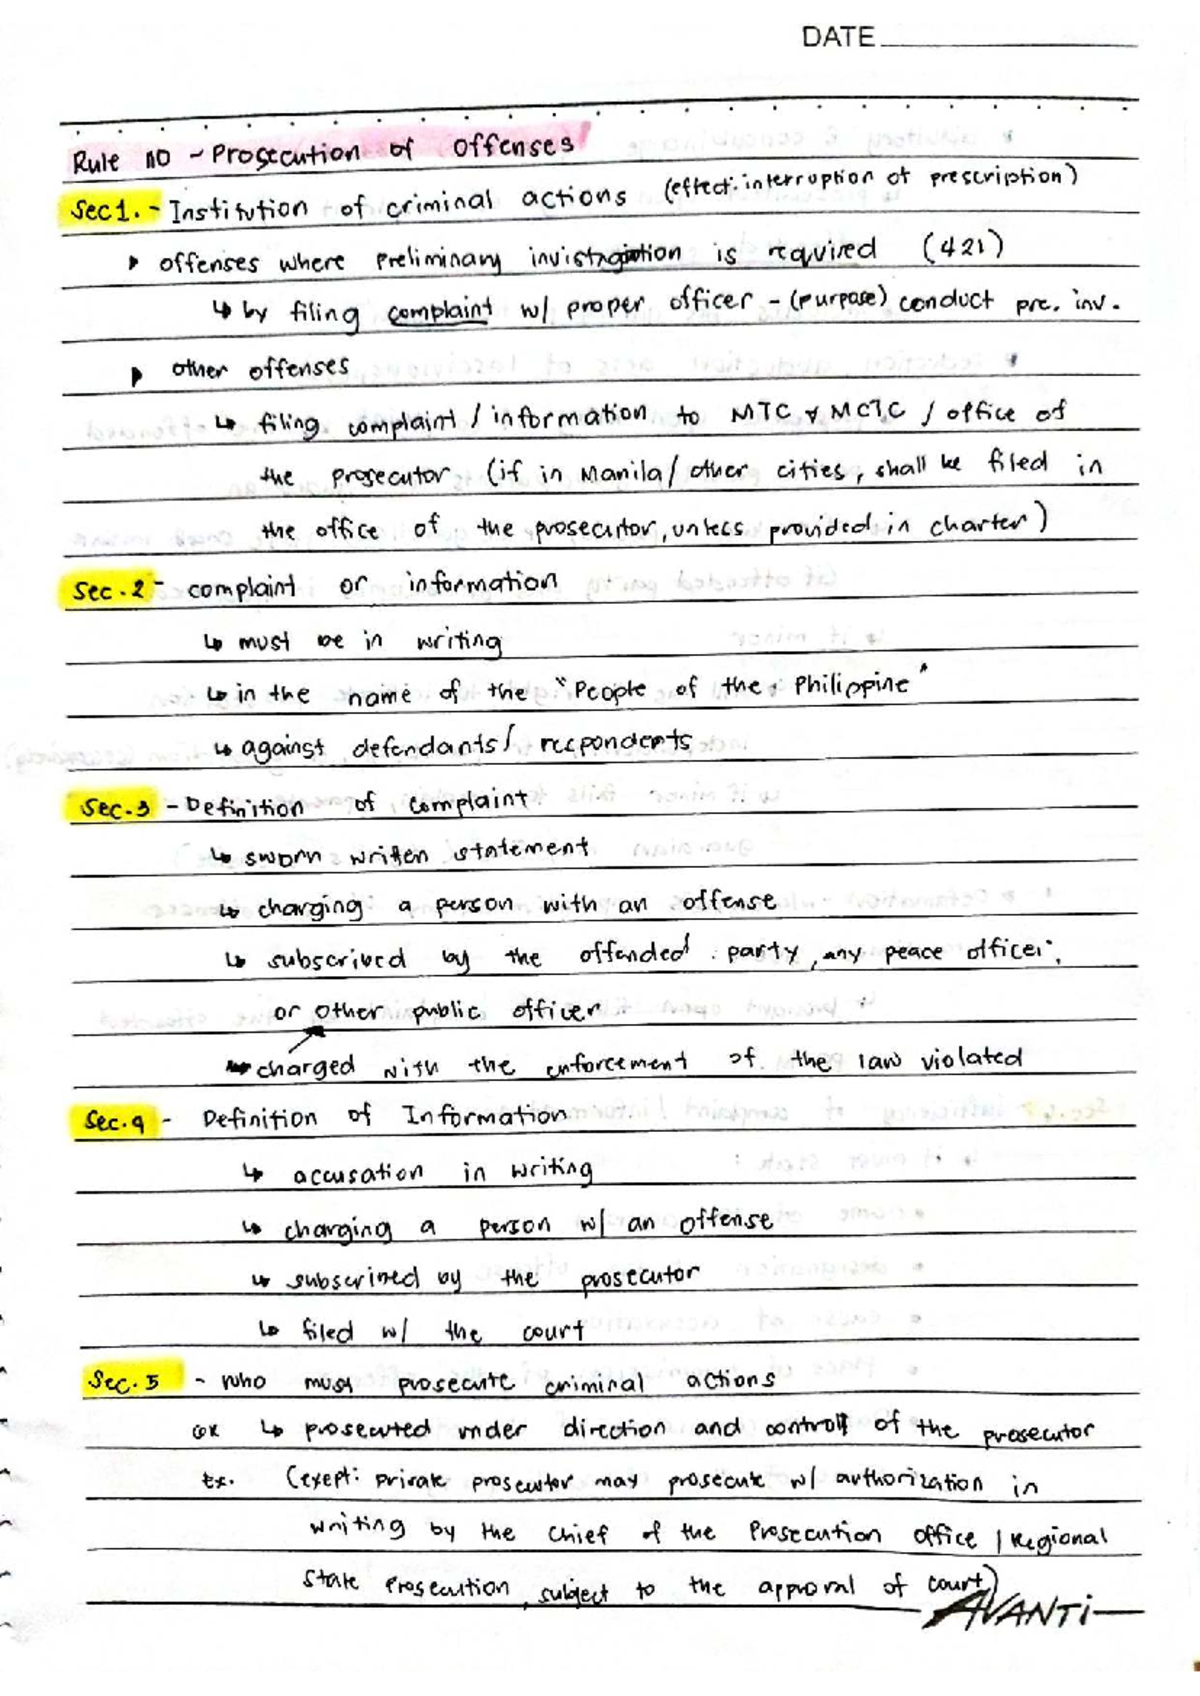 DATE
Rule 110 - Prosecution of Offenses
Sec 1. - Institution of criminal actions (effect: interruption of prescription)
offenses where preliminary invistigation is required (421)
↳ by filing complaint w/ proper officer - (purpose) conduct pre. inv.
other offenses
↳ filing complaint / information to MTC & MCTC / office of
the prosecutor (if in Manila / other cities, shall be filed in
the office of the prosecutor, unless provided in charter)
Sec. 2 - complaint or information
↳ must be in writing
↳ in the name of the "People of the Philippine"
↳ against defendants / respondents
Sec. 3 - Definition of complaint
↳ sworn written statement
↳ charging a person with an offense
↳ subscribed by the offended party, any peace officer,
or other public officer
charged with the enforcement of the law violated
Sec. 4 - Definition of Information
↳ accusation in writing
↳ charging a person w/ an offense
↳ subscribed by the prosecutor
↳ filed w/ the court
Sec. 5 - who must prosecute criminal actions
↳ prosecuted under direction and control of the prosecutor
Ex. (exept: private prosecutor may prosecute w/ authorization in
writing by the Chief of the Prosecution Office / Regional
State Prosecution, subject to the approval of court)
AVANTi